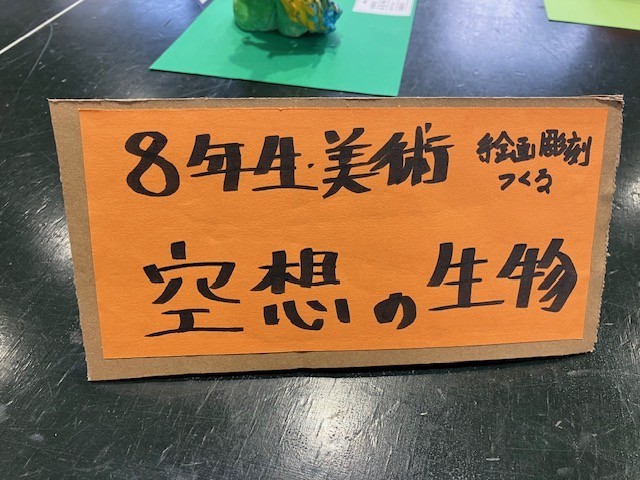 8年生・美術 絵画彫刻
つくる
空想の生物